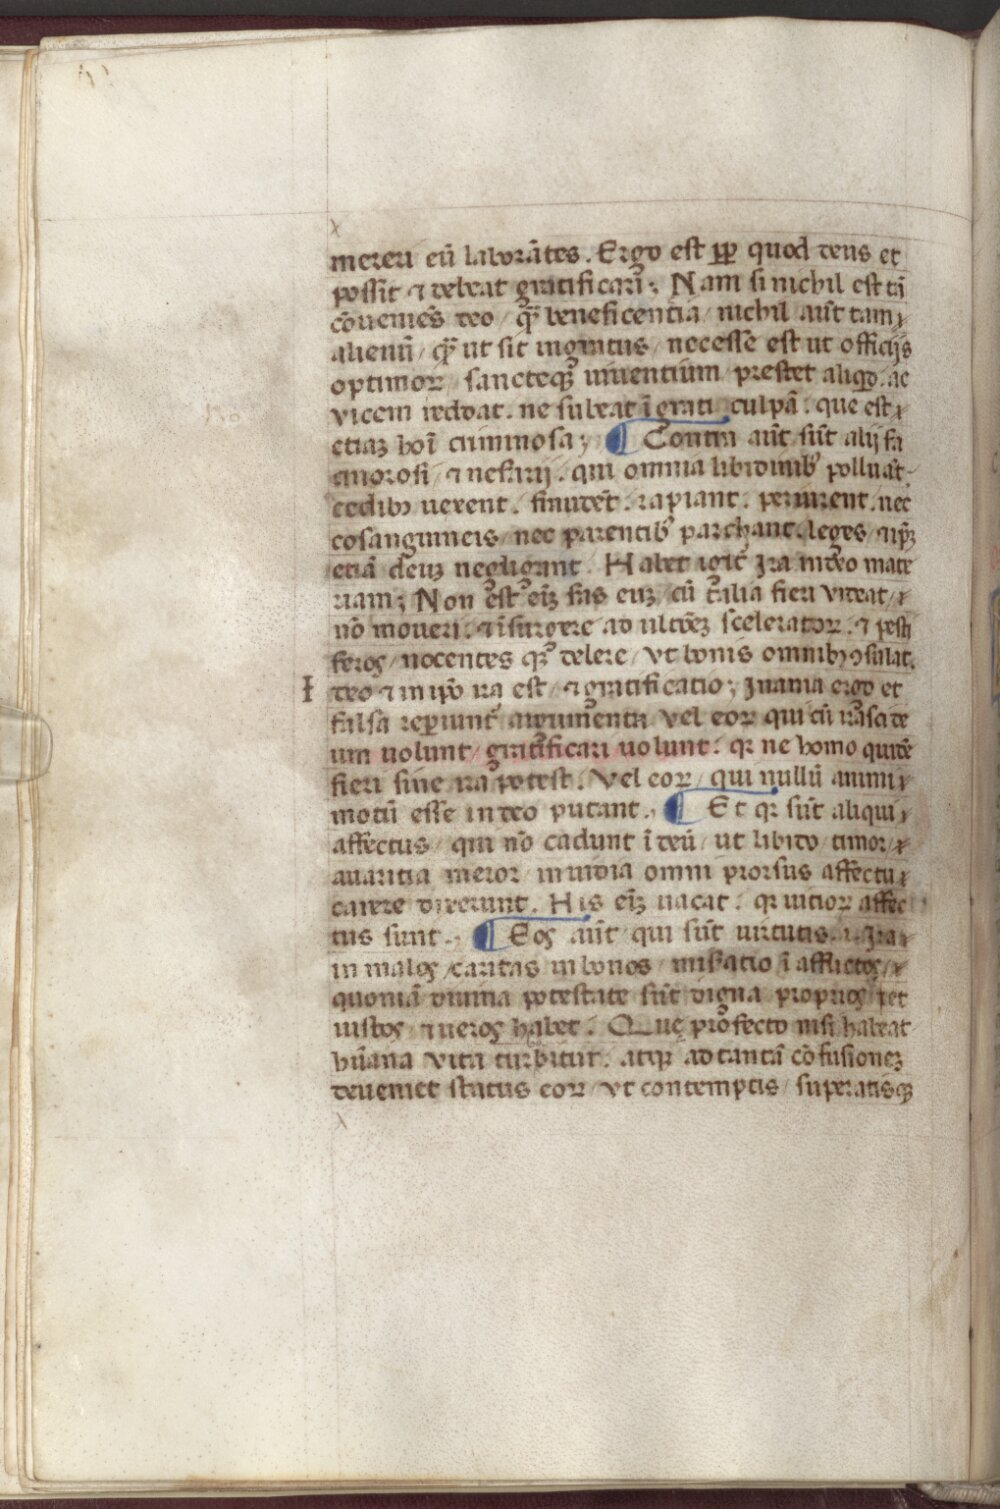 mereri eū laborātes. Ergo est ꝓp quod deus et
possit ⁊ debeat gratificari; Nam si nichil est tā
cōueniēs deo / qꝫ beneficentia / nichil aūt tam
alienū / qꝫ ut sit ingratus / necesse est ut officijs
optimoꝝ / sancteqꝫ uiuentium prestet aliqd. ac
vicem reddat. ne subeat īgrati culpā. que est
etiaꝫ hoī criminosa; ¶ Contra aūt sūt alij fa
cinorosi / ⁊ nefarij. qui omnia libidinibꝰ polluāt.
cedibꝫ uexent. fraudēt. rapiant. periurent. nec
cosanguineis / nec parentibꝰ parchant. leges / ⁊ ipꝫ
etiā deuꝫ negligant. Habet igit̄ Ira in deo mate
riam; Non est eīꝫ fas euꝫ, cū talia fieri videat /
nō moueri. ⁊ īsurgere ad ultōeꝫ sceleratoꝝ. ⁊ pesti
feros / nocentes qꝫ delere / vt bonis omnibꝫ ꝯsulat.
I deo ⁊ in ipō ira est / ⁊ gratificatio; Inania ergo et
falsa reperiunt̄ argumenta vel eoꝝ qui cū irasci de
um nolunt / gratificari uolunt. qꝛ ne homo quidē
fieri sine ira potest. Vel eoꝝ / qui nullū animi
motū esse in deo putant. ¶ Et qꝛ sūt aliqui
affectus / qui nō cadunt ī deū / ut libido / timor /
auaritia meror / inuidia omni prorsus affectu
carere dixerunt. His eīꝫ uacat. qꝛ uitioꝝ affec
tus sunt. ¶ Eos aūt qui sūt uirtutis .i. Ira
in malos / caritas in bonos / misatio ī afflictos /
quoniā diuina potestate sūt digna proprios / et
iustos / ⁊ ueros habet. Que profecto nisi habeat
hūana vita turbitur. atqꝫ ad tantā cōfusioneꝫ
deueniet status eoꝝ / vt contemptis / superatisqꝫ